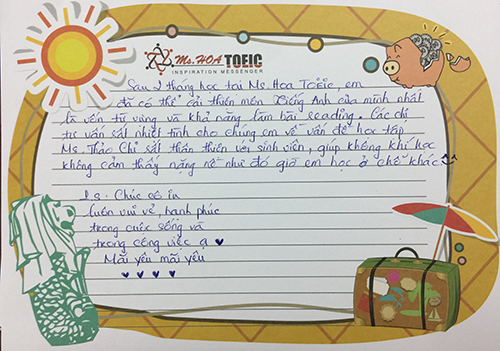 Ms. HOA TOEIC
INSPIRATION MESSENGER
Sau 2 tháng học tại Ms. Hoa Toeic, em
đã có thể cải thiện môn Tiếng Anh của mình nhất
là vốn từ vựng và khả năng làm bài reading. Các chị
tư vấn rất nhiệt tình cho chúng em về vấn đề học tập
Ms. Thảo Chi rất thân thiện với sinh viên, giúp không khí học
không cảm thấy nặng nề như đó giờ em học ở chỗ khác
P.s: Chúc cô
luôn vui vẻ, hạnh phúc
trong cuộc sống và
trong công việc ạ
Mãi yêu mãi yêu